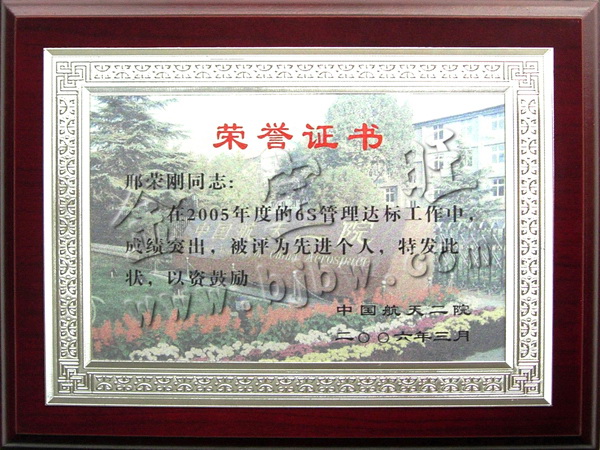 荣誉证书
邢荣刚同志：
在2005年度的6S管理达标工作中，
成绩突出，被评为先进个人，特发此
状，以资鼓励
中国航天二院
二〇〇六年三月
www.bjbw.com